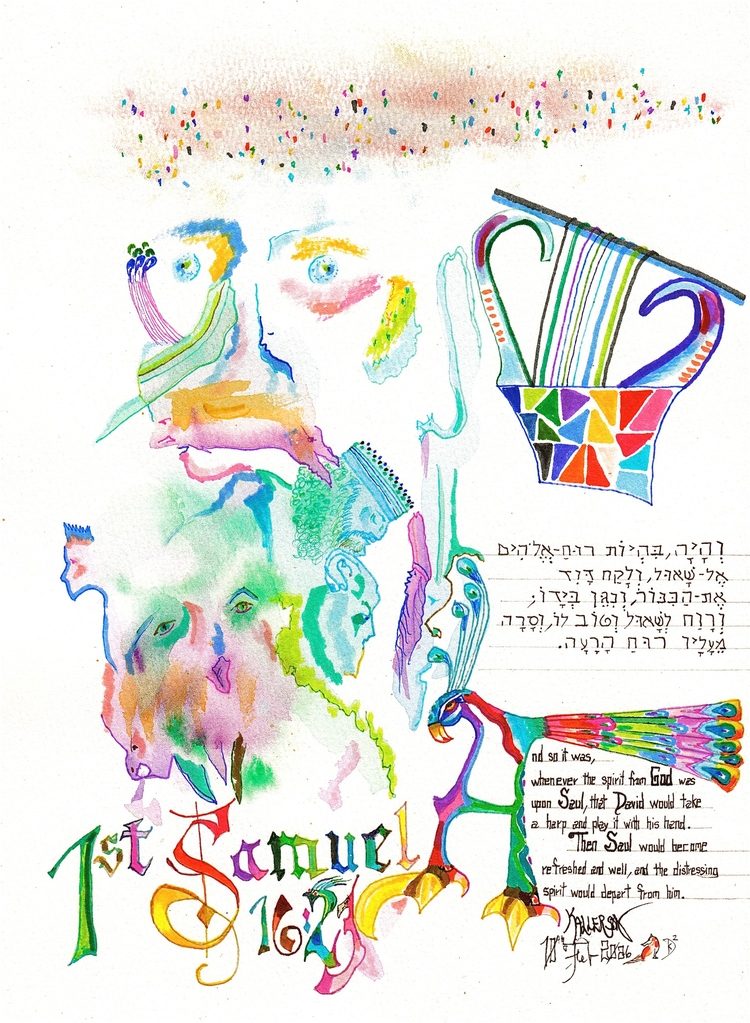 וְהָיָה, בִּהְיוֹת רוּחַ-אֱלֹהִים
אֶל-שָׁאוּל, וְלָקַח דָּוִד
אֶת-הַכִּנּוֹר, וְנִגֵּן בְּיָדוֹ;
וְרָוַח לְשָׁאוּל וְטוֹב לוֹ, וְסָרָה
מֵעָלָיו רוּחַ הָרָעָה.
And so it was,
whenever the spirit from God was
upon Saul, that David would take
a harp and play it with his hand.
Then Saul would become
refreshed and well, and the distressing
spirit would depart from him.
1st Samuel
16:23
KALLERSON